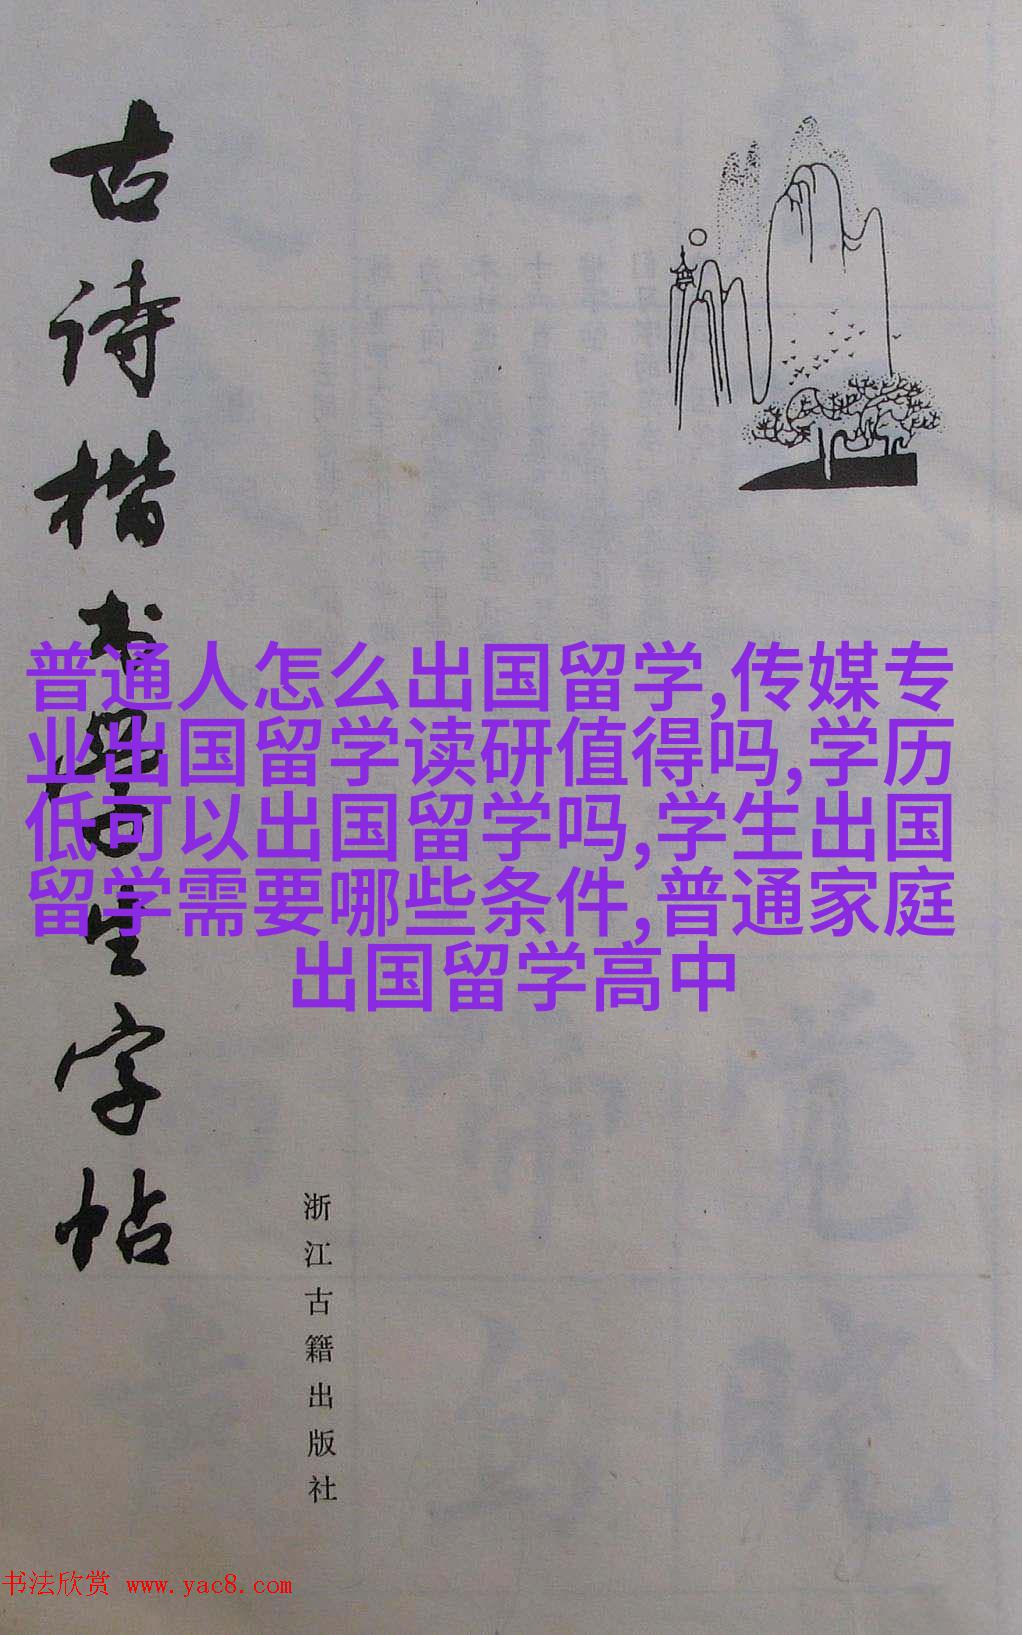 古诗楷书学生字帖
普通人怎么出国留学,传媒专
业出国留学读研值得吗,学历
低可以出国留学吗,学生出国
留学需要哪些条件,普通家庭
出国留学高中
浙江古籍出版社
书法欣赏 www.yac8.com